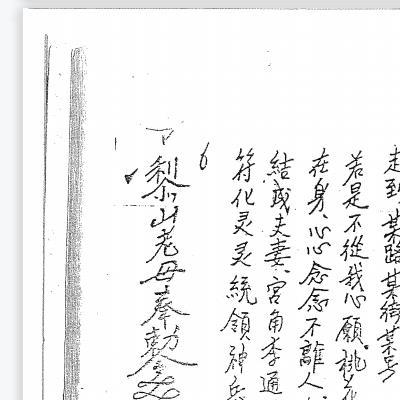 走到某路某街某号
若是不從我心願桃花
在身、心心念念不離人
結成夫妻、宮角李通
符化灵灵統領神兵
6
黎山老母奉勅令